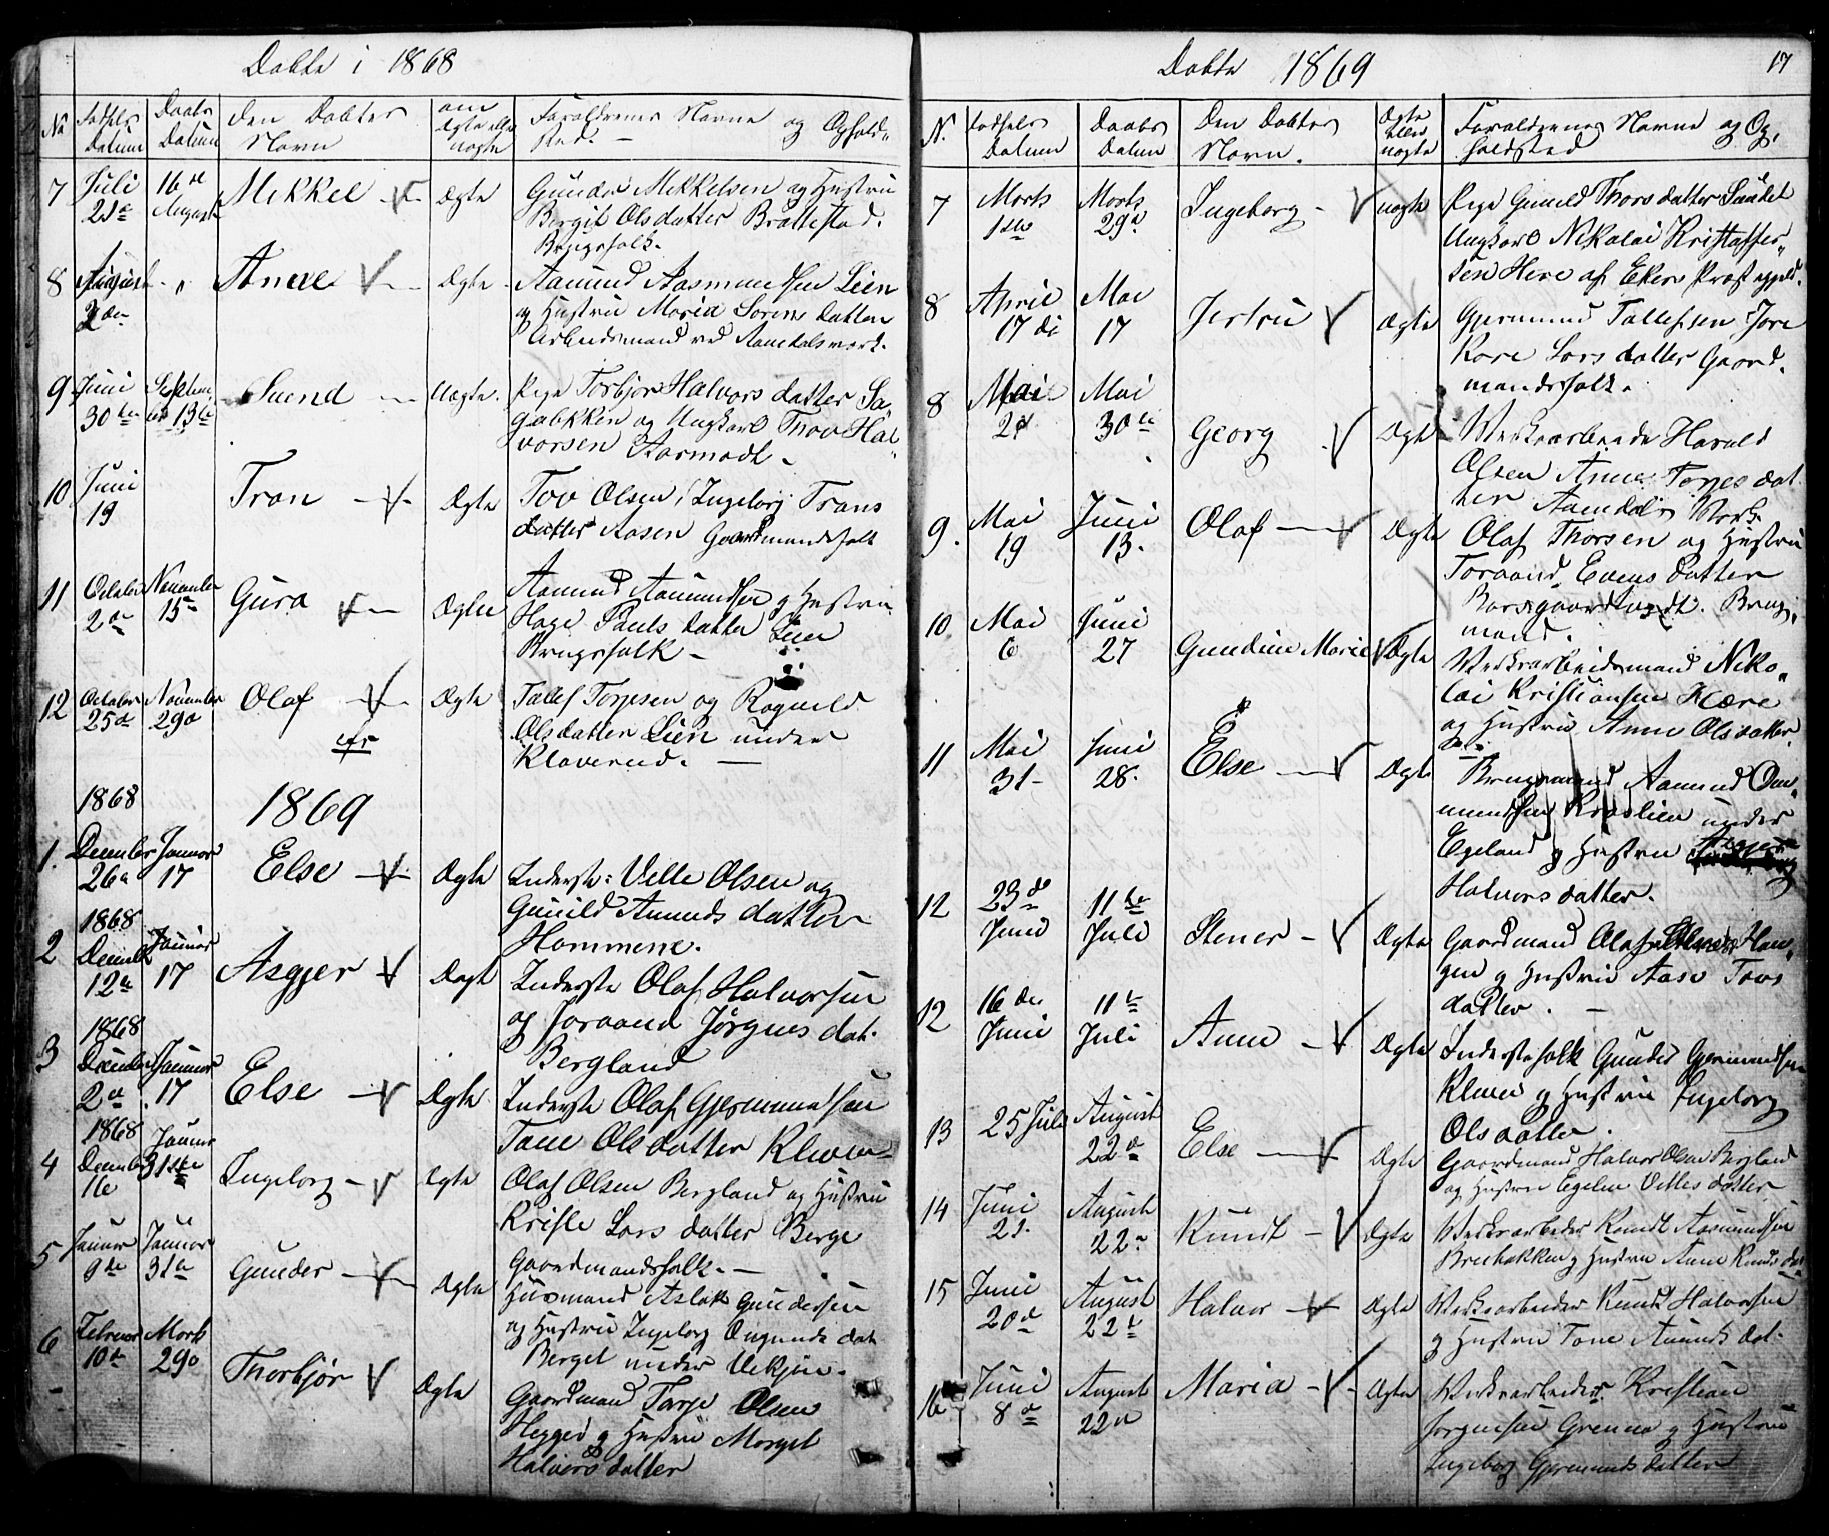 Døbte i 1868
No
Fødsels Datum
Daabs Datum
Den Døbtes Navn
om Ægte eller uægte
Forældrenes Navne og Opholds Sted.
7 Juli 21de 16de August Mikkel Ægte Gunder Mikkelsen og Hustru
Bergit Olsdatter Brattestad.
Brugsfolk.
8 August 2den " Anne Ægte Aamund Aasmundsen Lien
og Hustru Maria Sørensdatter
Arbeidsmand ved Aamdalsværk.
9 Juni 30te September 13de Svend Uægte. Pige Torbjør Halvorsdatter Sa-
gabækken og Ungkarl Thov Hal-
vorsen Aarmodt
10 Juni 19 Tron Ægte Tov Olsen, Ingeborg Trons
datter Aasen Gaardmandsfolk
11 October 2de November 15de Guro Ægte Aamund Aamundsen og Hustru
Hage Pauls datter Lien
Brugsfolk
12 October 25de November 29de Olaf Ægte Tallef Torjesen og Ragnild
Olsdatter Lien under
Kleverud.
1868
1869
1. December 26de Januar 17 Else Ægte Inderste: Vetle Olsen og
Gunild Amundsdatter
Hommene.
1868
2 December 12te Januar 17 Asgjer Ægte Inderste Olaf Halvorsen
og Joraand Jørgnes dat.
Bergland
1868
3 December 2den Januar 17 Else Ægte Inderste Olaf Gjermundsen
Tone Olsdatter Kleven
1868
4 December 16 Januar 31te Ingeborg Ægte Olaf Olsen Bergland og Hustru
Kristi Lars datter Berge
Gaardmandsfolk.
5 Januar 9de Januar 31te Gunder Ægte Husmand Aslak Gundersen
og Hustru Ingeborg Øigunds dat
Berget under
6 Februar 10de Marts 29de Thorbjør Ægte Gaardmand Torje Olsen
Hegged og Hustru Morget
Halvorsdatter
Døbte 1869
17
N.
Fødsels Datum
Daabs Datum
Den Døbtes Navn.
Ægte eller uægte
Forældrenes Navne og Op-
holdsted
7 Marts 1ste Marts 29de Ingeborg uægte Pige Gunild Thorsdatter
Ungkarl Nikolai Kristoffer-
sen Here af Eker Præstegjeld.
8 April 17de Mai 17 Jertru Ægte Gjermund Tallefsen Jore
Kari Lars datter Gaard-
mandsfolk.
8 Mai 2d Mai 30te Georg Ægte Værksarbeide Harald
Olsen Anne Torjesdat-
ter Aamdals Værk.
9. Mai 19 Juni 13. Olaf Ægte Olaf Thorsen og Hustru
Joraand Evensdatter
Brug-
mand.
10 Mai 6 Juni 27 Gundine Marie Ægte Værksarbeidsmand Niko-
lai Kristiansen Kære
og Hustru Anne Olsdatter
11 Mai 31 Juni 28. Else Ægte Brugsmand Aamund Om-
mundsen Kraaslien under
Egeland og Hustru Asgjer
Halvorsdatter.
12 23de Juni 11te Juli Stener Ægte Gaardmand Olaf Stener Han-
gen og Hustru Aase Tovs
datter.
12 16de Juni 11te Juli Anne Ægte Inderstefolk Gunder Gjermundsen
Kleven og Hustru Ingeborg
Olsdatter.
13 25 Juli August 22de Else Ægte Gaardmand Halvor Olsen Bergland
og Hustru Egelin Vetles datter
14 Juni 21. August 22de Knudt Ægte Værksarbeider Knudt Aasmundsen
Brubakken og Hustru Anne Knuds dat
15 Juni 20de August 22de Halvor Ægte Værksarbeider Knudt Halvorsen
og Hustru Tone Amunds dat.
16 Juni 8de August 22de Maria Ægte Værksarbeider Kristian
Jørgensen Grenne og Hustru
Ingeborg Gjermundsdatter